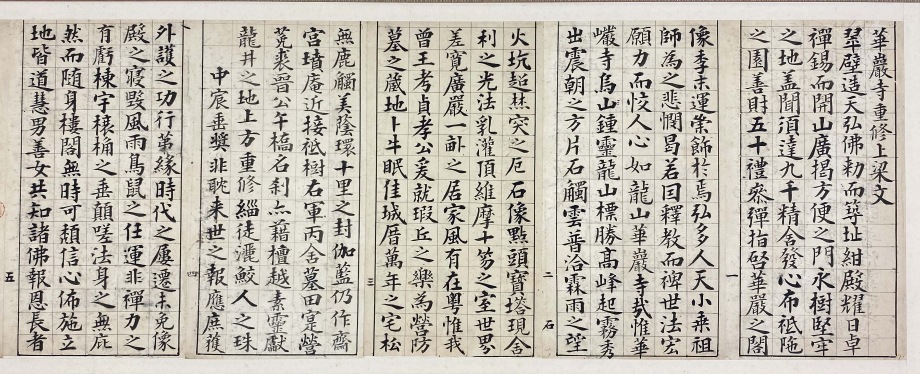 華嚴寺重修上梁文
翠壁造天弘佛勅而筭址紺殿耀日卓
禪錫而開山廣揭方便之門永樹堅牢
之地盖聞須達九千精舍發心布祗陁
之園善財五十禮叅彈指啓華嚴之閣
一
像季末運崇飾於焉弘多人天小乗祖
師為之悲憫曷若因釋教而裨世法宏
願力而忮人心如龍山華嚴寺㦲惟華
巗寺烏山鍾靈龍山標勝高峰起霧秀
出震朝之方片石觸雲普洽霖雨之望
二 石
火坑超焚突之厄石像點頭寶塔現舍
利之光法乳灌頂維摩十笏之室世界
差寬廣嚴一之居家風有在粤惟我
曾王考貞孝公爰就瑕丘之樂為營防
墓之蔵地卜牛眠佳城厝萬年之宅松
三
無鹿觸美蔭環十里之封伽藍仍作齋
宮墳庵近接祗樹右軍丙舍墓田寔營
菟裘晉公午橋名刹亦藉檀越素靈獻
龍井之地上方重修緇徒灑鮫人之珠
中宸垂奬非耽来世之報應庶獲
四
外護之功行第緣時代之屢遷未免像
殿之寢毁風雨鳥鼠之任運非禪力之
有虧棟宇榱桷之垂顛嗟法身之無庇
然而随身樓閣無時可頽信心佈施立
地皆道慧男善女共知諸佛報恩長者
五